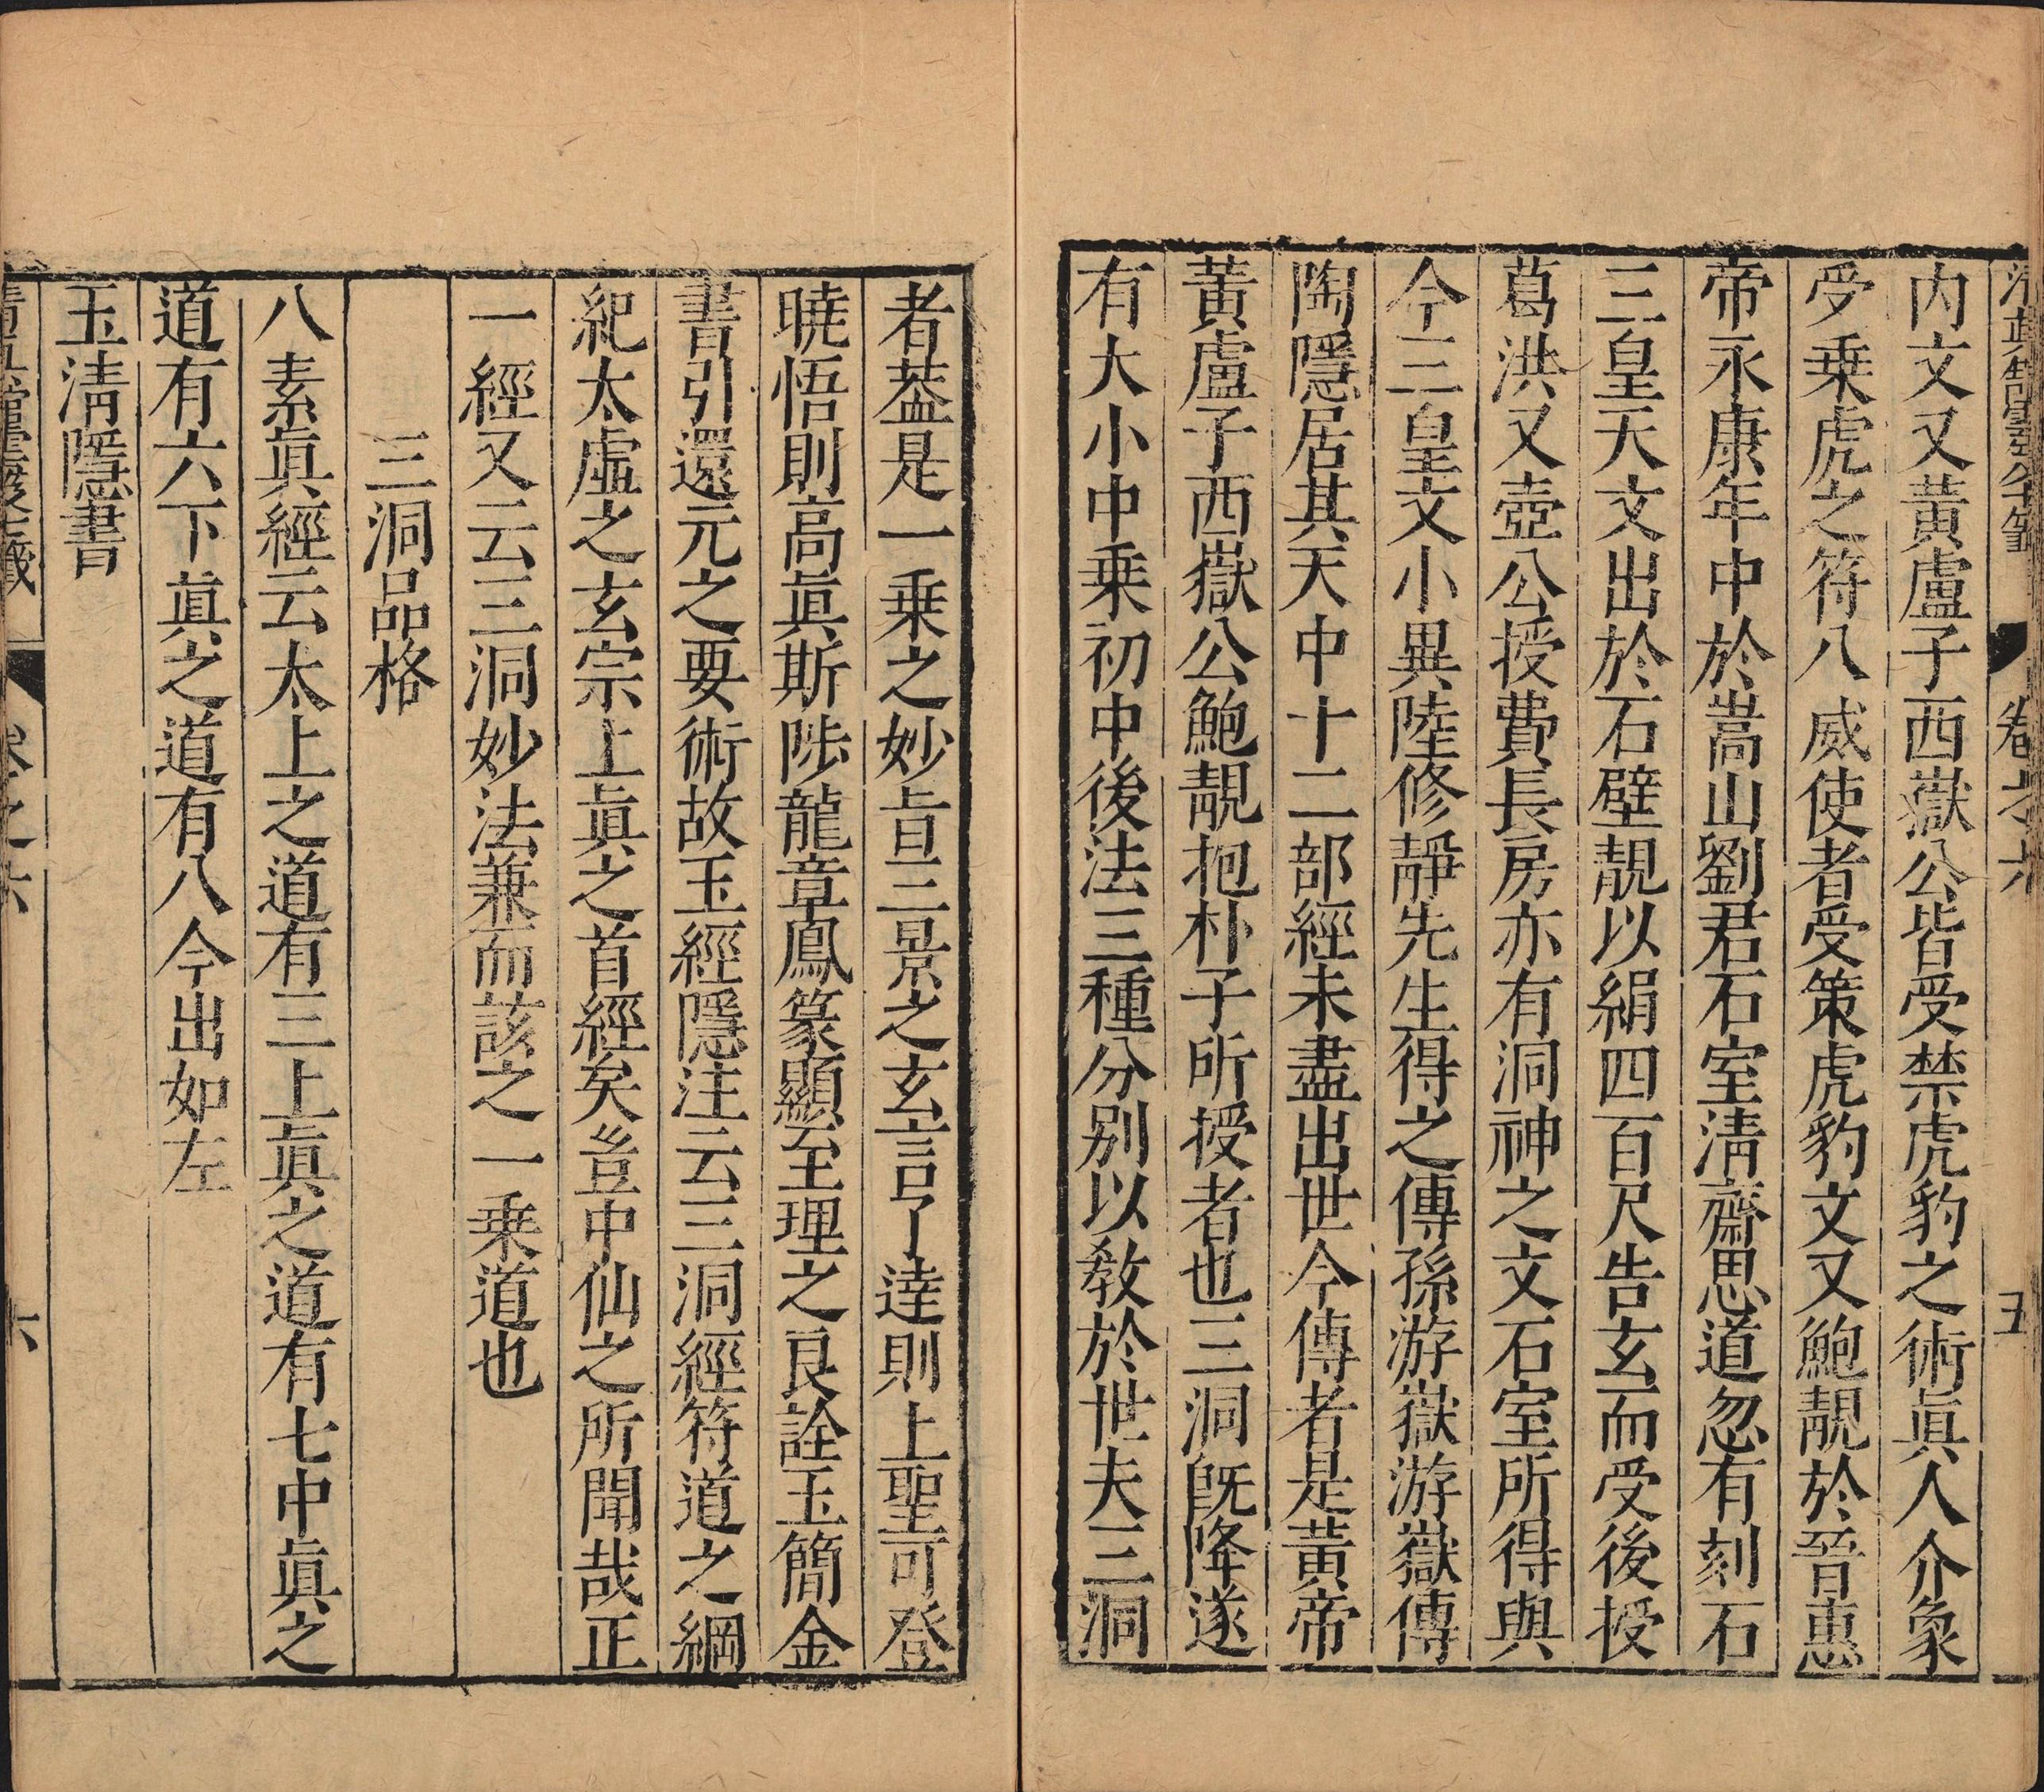 卷之六
五
内文又黃盧子西嶽公皆受禁虎豹之術眞人介象
受乗虎之符八威使者受策虎豹文又鮑靚於晉惠
帝永康年中於嵩山劉君石室淸齋思道忽有刻石
三皇天文出於石壁靚以絹四百尺告玄而受後授
葛洪又壺公授費長房亦有洞神之文石室所得與
今三皇文小異陸修靜先生得之傳孫游嶽游嶽傳
陶隱居其天中十二部經未盡出世今傳者是黃帝
黃盧子西嶽公鮑靚抱朴子所授者也三洞旣降遂
有大小中乗初中後法三種分别以敎於世夫三洞
者葢是一乗之妙㫖三景之玄言了達則上聖可登
曉悟則高眞斯陟龍章鳳篆顯至理之良詮玉簡金
書引還元之要術故玉經隱注云三洞經符道之綱
紀太虛之玄宗上眞之首經矣豈中仙之所聞哉正
一經又云三洞妙法兼而該之一乗道也
三洞品格
八素眞經云太上之道有三上眞之道有七中眞之
道有六下眞之道有八今出如左
玉淸隱書
六